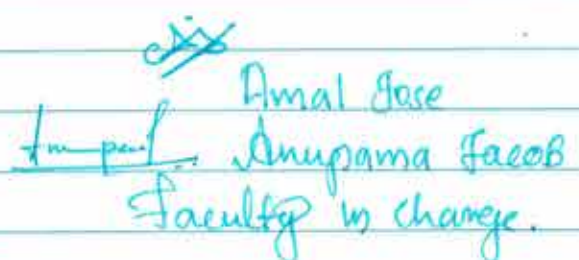 Amal Jose
Anupama Jacob
Faculty in charge.